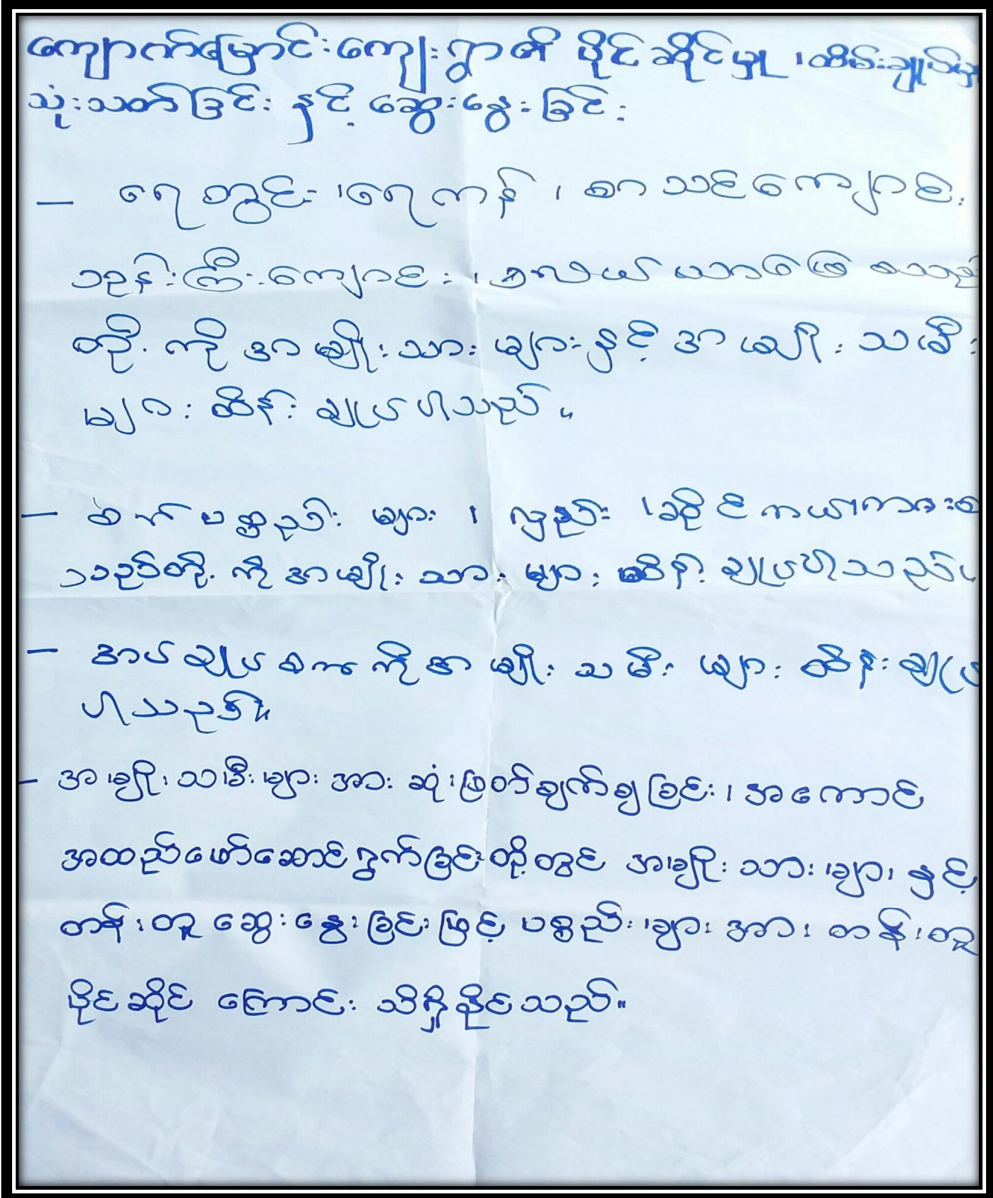 ကျောက်မြောင်းကျေးရွာ၏ ပိုင်ဆိုင်မှု ၊ ထိမ်းချုပ်မှု
သုံးသတ်ခြင်း နှင့် ဆွေးနွေးခြင်း
– ရေတွင်း ၊ ရေကန် ၊ စာသင်ကျောင်း၊
ဘုန်းကြီးကျောင်း ၊ ယာမြေ စသည်
တို့ ကို အမျိုးသားများနှင့် အမျိုးသမီး
များ ထိန်းချုပ်ပါသည်။
– စက်ပစ္စည်းများ ၊ လှည်း ၊ ဆိုင်ကယ်၊ကားစ
သည်တို့ ကို အမျိုးသားများ ထိန်းချုပ်ပါသည်။
– အပ်ချုပ်စက်ကို အမျိုးသမီးများ ထိန်းချုပ်
ပါသည်။
– အမျိုးသမီးများအား ဆုံးဖြတ်ချက်ချခြင်း ၊ အကောင်
အထည်ဖော်ဆောင်ရွက်ခြင်းတို့တွင် အမျိုးသားများ နှင့်
တန်းတူ ဆွေးနွေးခြင်းဖြင့် ပစ္စည်းများအား တန်းတူ
ပိုင်ဆိုင် ကြောင်း သိရှိနိုင်သည်။